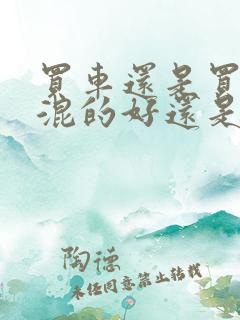 買車還是買
混的好還是
陶德
未任同意禁止转载